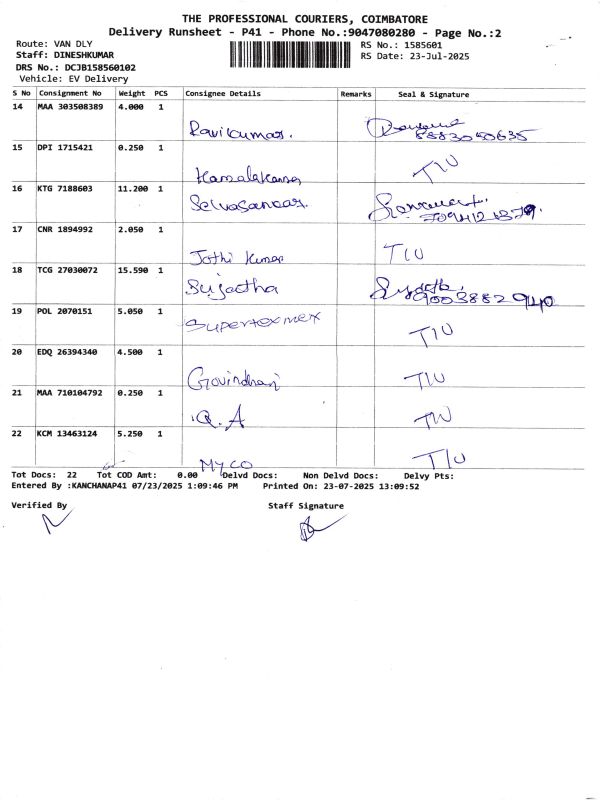 THE PROFESSIONAL COURIERS, COIMBATORE
Delivery Runsheet - P41 - Phone No.:9047080280 - Page No.:2
Route: VAN DLY
Staff: DINESHKUMAR
DRS No.: DCJB158560102
Vehicle: EV Delivery
RS No.: 1585601
RS Date: 23-Jul-2025
S No Consignment No Weight PCS Consignee Details Remarks Seal & Signature
14 MAA 303508389 4.000 1
Ravikumar.
15 DPI 1715421 0.250 1
TIU
16 KTG 7188603 11.200 1
Selvasankar.
17 CNR 1894992 2.050 1
Jothi Kumar TIU
18 TCG 27030072 15.590 1
Sujatha
19 POL 2070151 5.050 1
Supertexmex TIU
20 EDQ 26394340 4.500 1
TIU
21 MAA 710104792 0.250 1
Q.A TIU
22 KCM 13463124 5.250 1
MYCO TIU
Tot Docs: 22 Tot COD Amt: 0.00 Delvd Docs: Non Delvd Docs: Delvy Pts:
Entered By :KANCHANAP41 07/23/2025 1:09:46 PM Printed On: 23-07-2025 13:09:52
Verified By Staff Signature